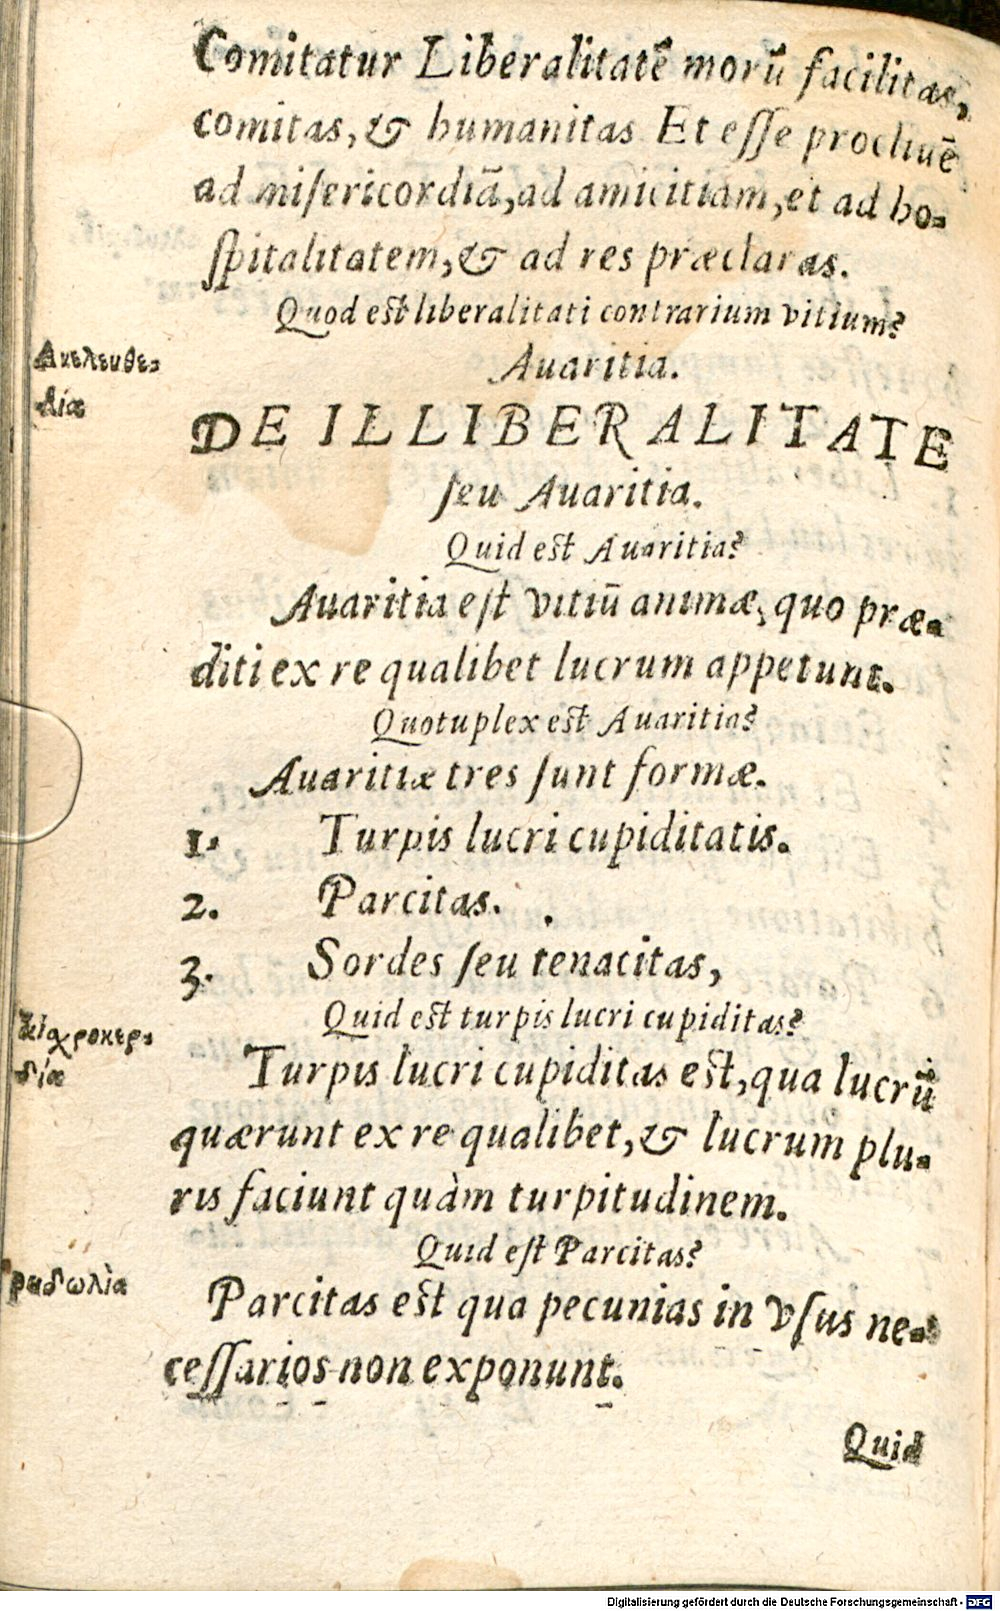 Comitatur Liberalitatẽ morũ facilitas,
comitas, & humanitas Et esse procliuẽ
ad misericordiã, ad amicitiam, et ad ho-
spitalitatem, & ad res præclaras.
Quod est liberalitati contrarium vitium?
Ανελευθε-
ρία
Auaritia.
DE ILLIBERALITATE
seu Auaritia.
Quid est Auaritia?
Auaritia est vitiũ animæ, quo præ-
diti ex re qualibet lucrum appetunt.
Quotuplex est Auaritia?
Auaritiæ tres sunt formæ.
1. Turpis lucri cupiditatis.
2. Parcitas.
3. Sordes seu tenacitas,
Quid est turpis lucri cupiditas?
αἰσχροκερ-
δία
Turpis lucri cupiditas est, qua lucrũ
quærunt ex re qualibet, & lucrum plu-
ris faciunt quàm turpitudinem.
Quid est Parcitas?
Parcitas est qua pecunias in vsus ne-
cessarios non exponunt.
Quid
Digitalisierung gefördert durch die Deutsche Forschungsgemeinschaft - DFG